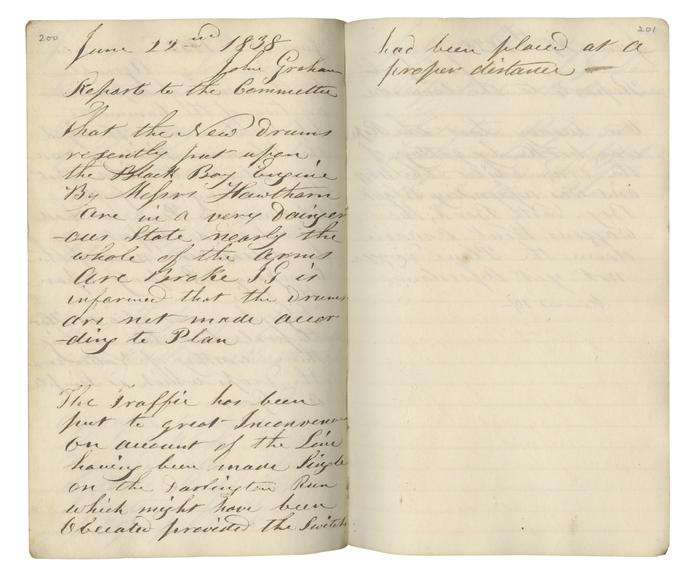 200
June 22nd 1838
John Graham
Reports to the Committee
That the New drums
resently put upon
the Black Boy Engine
By Messrs Hawthorn
are in a very Dainger
-ous State nearly the
whole of the arms
are Broke J G is
informed that the drums
are not made accor
-ding to Plan
The Traffic has been
put to great Inconvenien
on account of the Line
having been made Single
on the Darlington Run
which might have been
Obveated provided the Switch
201
had been placed at a
proper distance